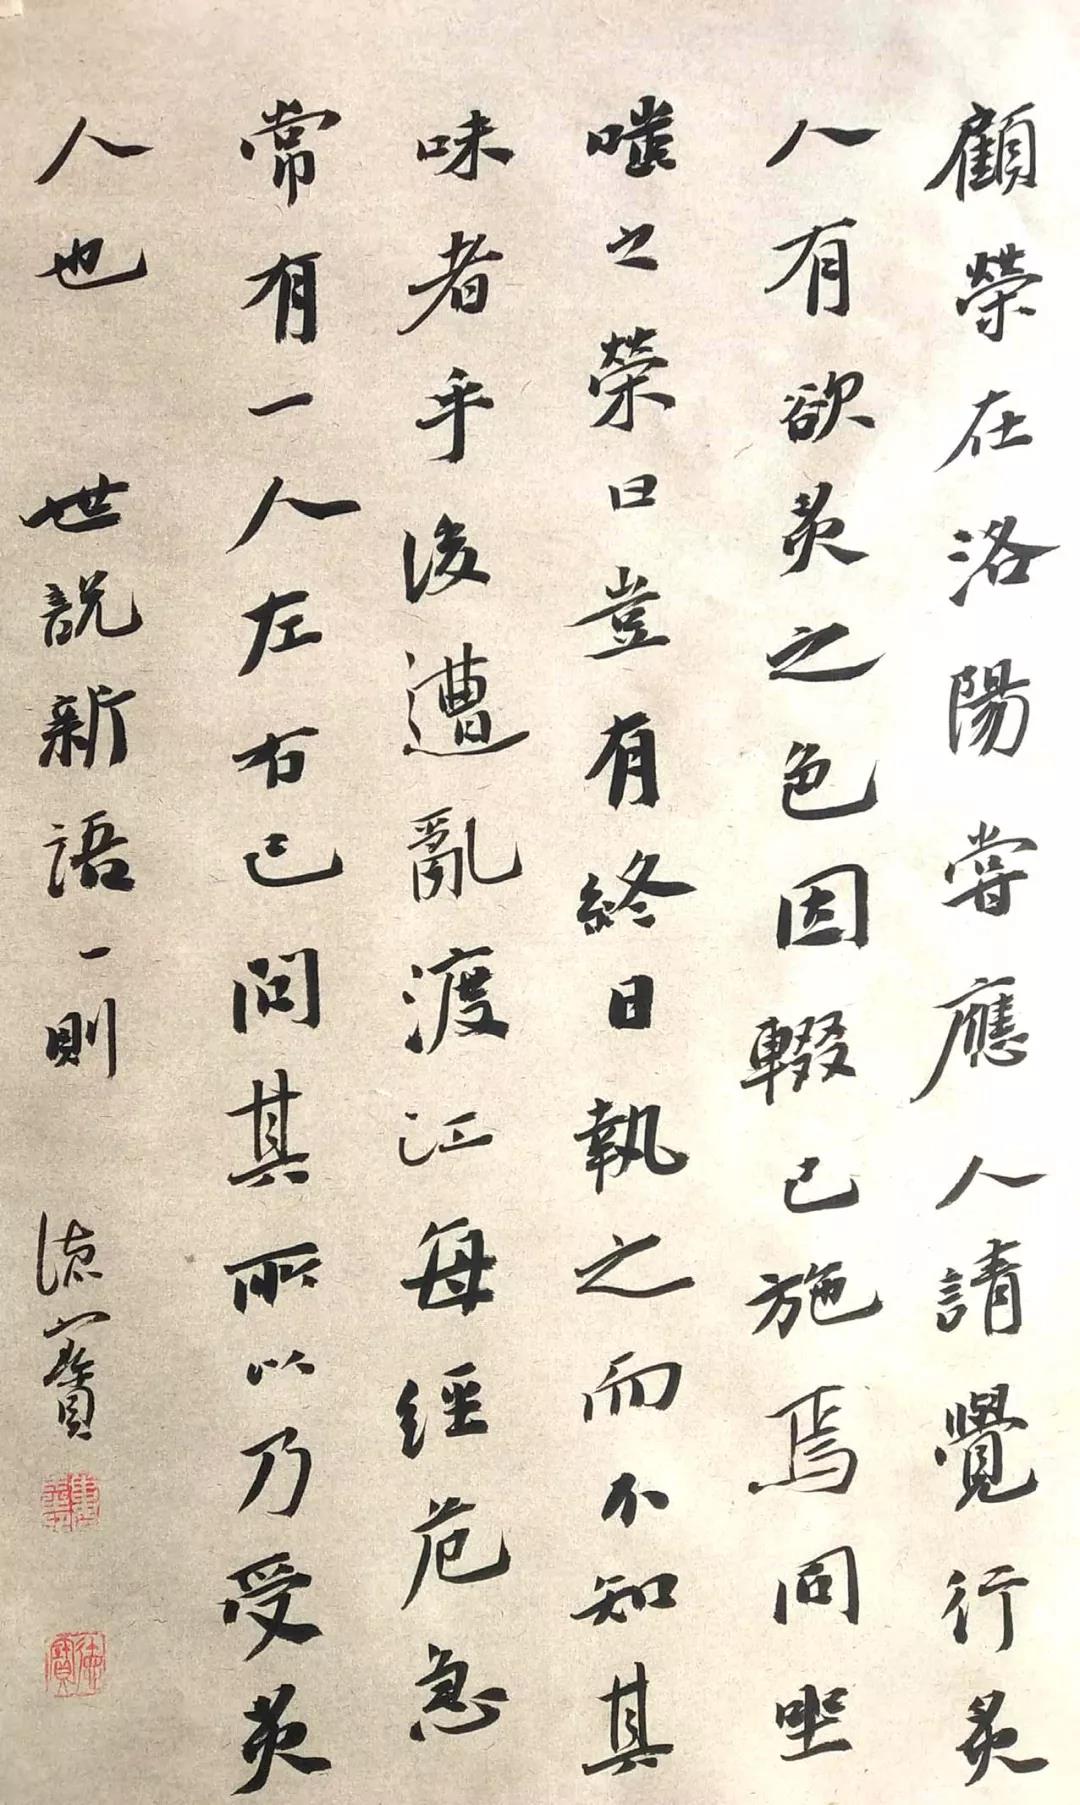 顧榮在洛陽嘗應人請覺行炙
人有欲炙之色因輟已施焉同坐
嗤之榮曰豈有終日執之而不知其
味者乎後遭亂渡江每經危急
常有一人左右已問其所以乃受炙
人也 世說新語一則 德寶
德寶